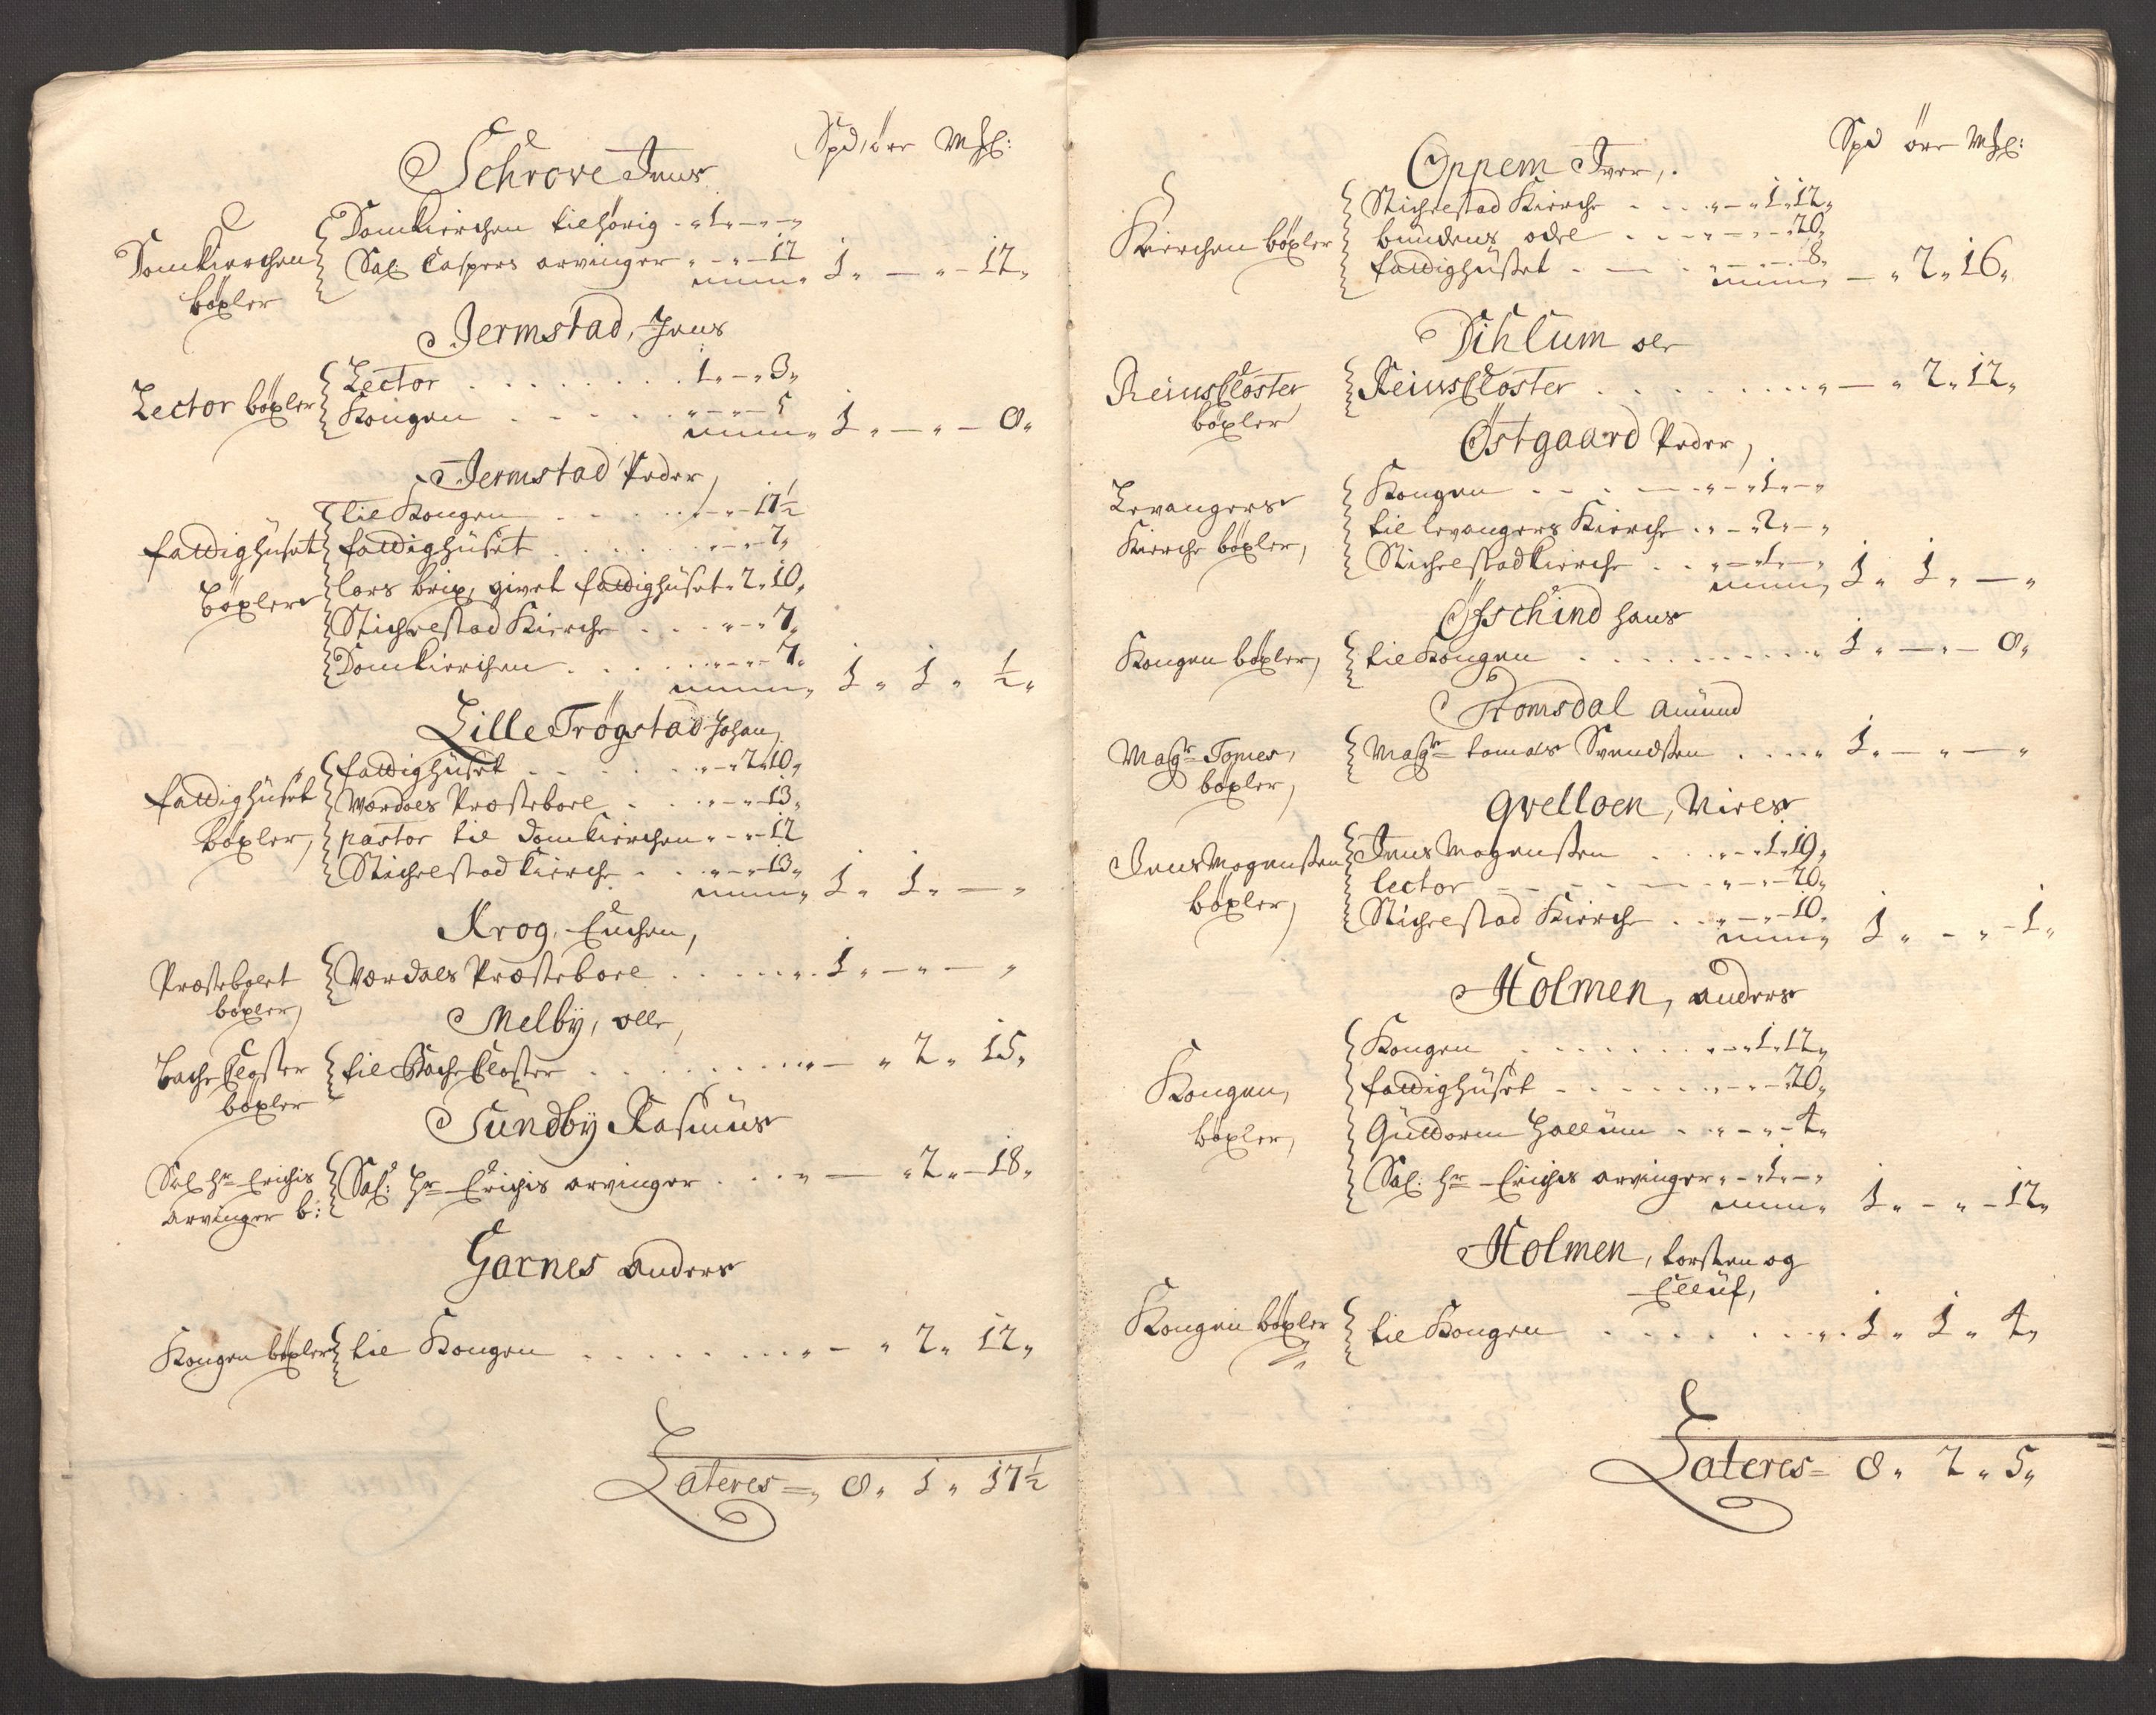 Spd, örr Mkl:
Schrove Jens
Domkierchen böxler
Domkierchen tilhörig „1„–„–„
Sal Caspers arvinger „–„–12
1„–„–12„
Jermstad, Jens
Lector böxler
Lector 1„–„3„
Kongen „–„–5
1„–„–8„
Jermstad Peder,
fattighuset böxler
til Kongen „–„–17½
fattighuset „–„–7„
lars brix, givet fattighuset „2„10„
Stichelstad Kierche „–„7„
Domkierchen „–„–7„
1„1„½„
Lille Trögstad Johan,
fattighuset böxler,
fattighuset „–„2„10„
Værdals Præstebole „–„13„
pastor til domkierchen „–„12
Stichelstad Kierche „–„13„
1„1„–„
Krog, Euchen,
Præstebolet böxler,
Værdals Præstebole 1„–„–„
Melby, olle,
Bache Closter böxler
til Bache Closter „–„2„15„
Sundby Rasmus
Sal Hr Erichs arvinger b:
Sal: Hr Erichs arvinger „–„2„–18„
Garnes anders
Kongen böxler
til Kongen „–„2„12„
Lateres = „8„1„17½
Spd örr Mkl:
Oppem Iver,
Kierchen böxler
Stichelstad Kierche „–„1„12„
bundens odel „–„–20„
fattighuset „–„–8„
–„2„16„
Dihlum ole
Reins Closter böxler
Reins Closter „–„2„12„
Östgaard Peder,
Levangers Kierche böxler,
Kongen „–„1„–„
til levangers Kierche „–„2„–„
Stichelstad Kierche „–„1„–„
1„1„–„
Öfschind hans
Kongen böxler,
til Kongen 1„–„–8„
Tromsdal amund
Magr Tomes, böxler,
Magr tomas Svendsen 1„–„–„
Qvelloen, Niels
Jens Mogensen böxler,
Jens Mogensen „–„1„19„
lector „–„–20„
Stichelstad Kierche „–„10„
1„–„–1„
Holmen, anders
Kongen, böxler,
Kongen „–„1„12„
fattighuset „–„–20„
Guttorm Hallum „–„–4„
Sal: Hr Erichs arvinger „–„1„–„
1„–„–12„
Holmen, torsten og
Elluf,
Kongen böxler
til Kongen „1„1„4„
Lateres = 8„2„5„